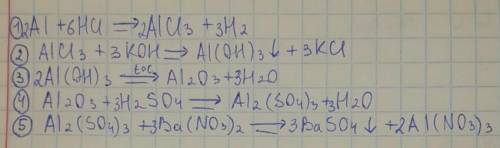 ① 2Al + 6HCl ⟹ 2AlCl3 + 3H2
② AlCl3 + 3KOH ⟹ Al(OH)3↓ + 3KCl
③ 2Al(OH)3 =t°C⟹ Al2O3 + 3H2O
④ Al2O3 + 3H2SO4 ⟹ Al2(SO4)3 + 3H2O
⑤ Al2(SO4)3 + 3Ba(NO3)2 ⟹ 3BaSO4↓ + 2Al(NO3)3